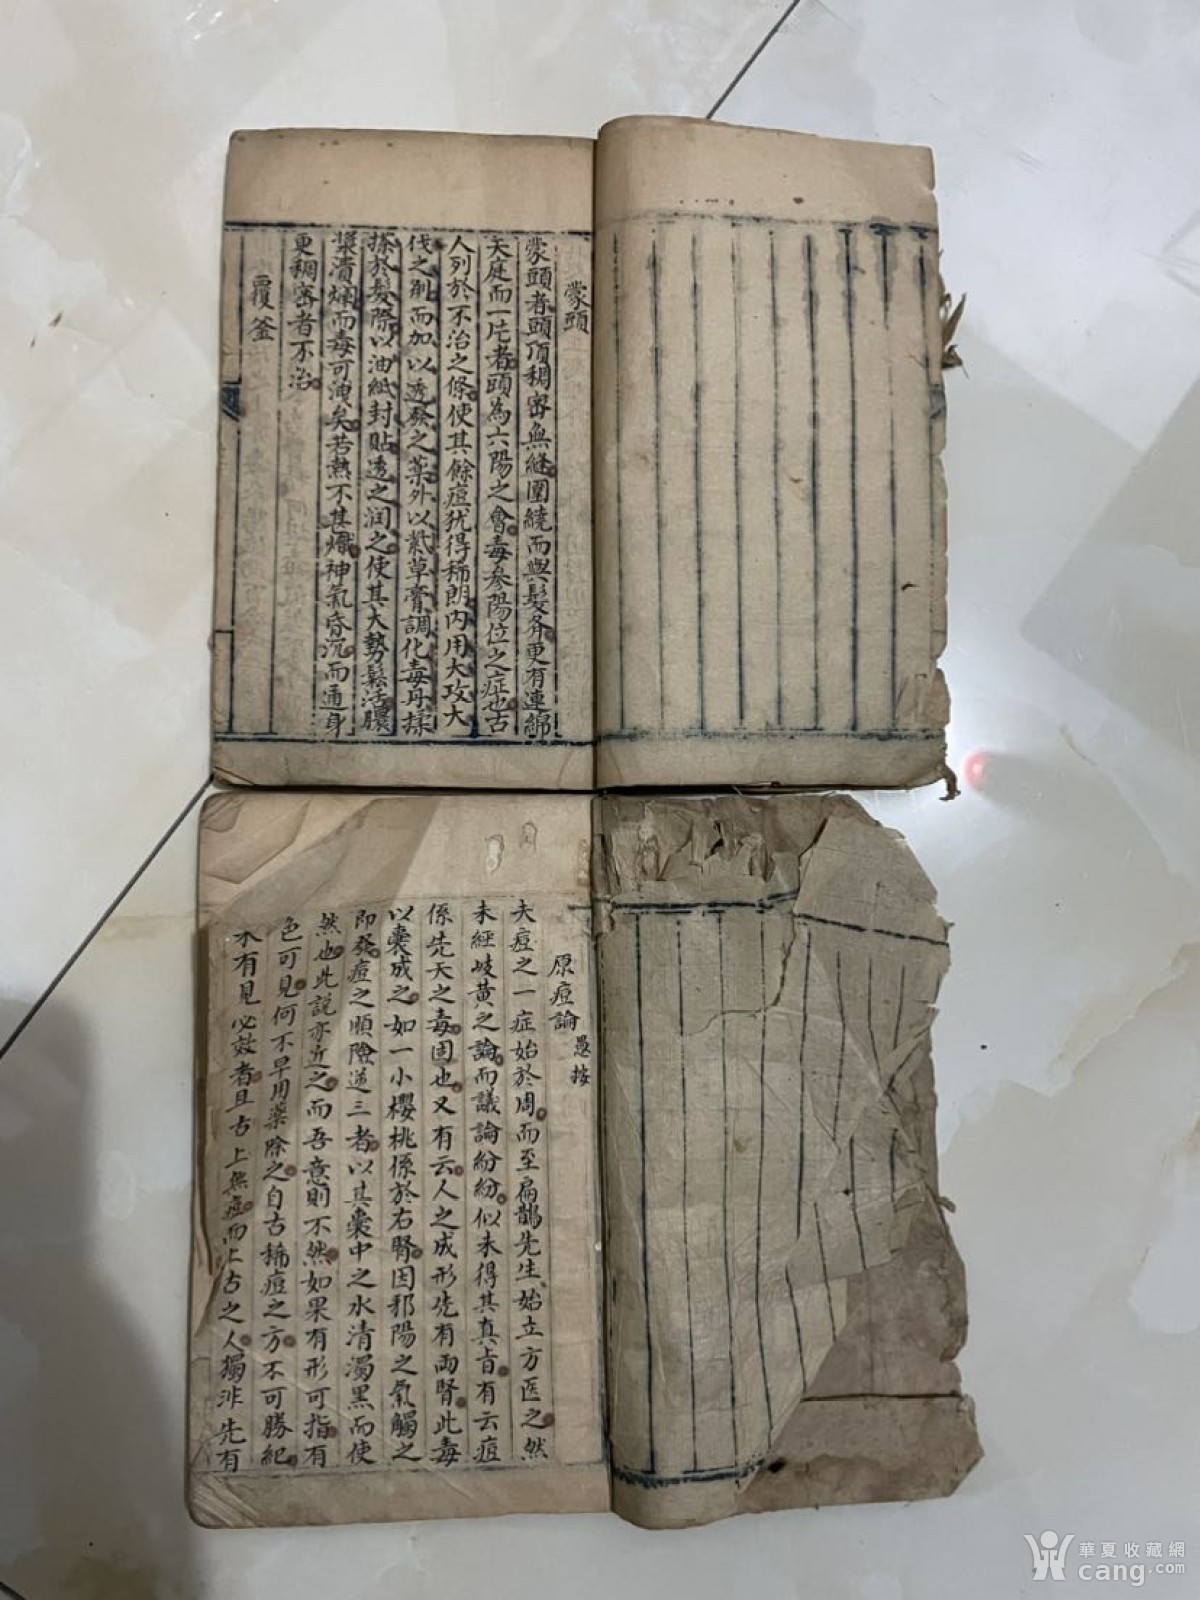 蒙頭
蒙頭者頭頂稠密無縫圍繞而與髮齐更有連綿
天庭而一片者頭為六陽之會毒参陽位之症也古
人列於不治之條使其餘痘犹得稀朗内用大攻大
伐之剤而加以透發之薬外以紫草膏調化毒丹揉
搽於髮際以油紙封貼透之润之使其大勢鬆活膿
漿漬爛而毒可洩矣若熱不甚熾神氣昏沉而通身
更稠密者不治
覆釜
原痘論愚按
夫痘之一症始於周而至扁鵲先生始立方医之然
未經岐黃之論而議論紛紛似未得其真旨有云痘
係先天之毒固也又有云人之成形先有兩腎此毒
以囊成之如一小櫻桃係於右腎因邪陽之氣觸之
即發痘之順險逆三者以其囊中之水清濁黑而使
然也此說亦近之而吾意則不然如果有形可指有
色可見何不早用薬除之自古稀痘之方不可勝紀
不有見必效者且古上無痘而上古之人獨非先有
華夏收藏網
cang.com